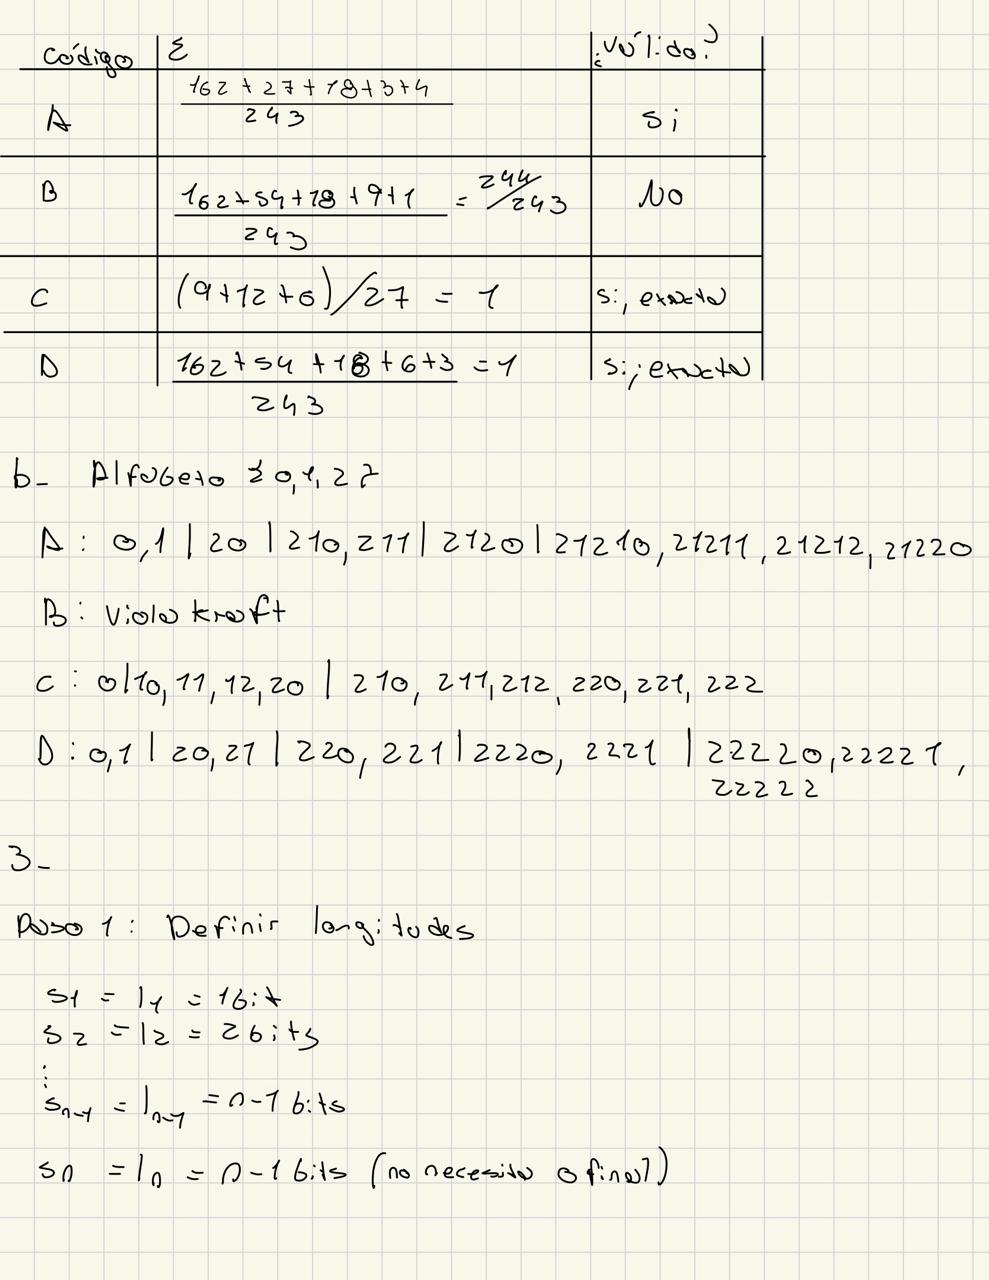 Código Σ ¿Válido?
A 162 + 27 + 18 + 3 + 4 / 243 Si
B 162 + 54 + 18 + 9 + 1 / 243 = 244/243 No
C (9 + 12 + 6)/27 = 1 Si, exacta
D 162 + 54 + 18 + 6 + 3 / 243 = 1 Si, exacta
b- Alfabeto {0,1,2}
A: 0,1 | 20 | 210, 211 | 2120 | 21210, 21211, 21212, 21220
B: Viola kraft
C: 0|10, 11, 12, 20 | 210, 211, 212, 220, 221, 222
D: 0,1 | 20, 21 | 220, 221 | 2220, 2221 | 22220, 22221,
22222
3-
Paso 1: Definir longitudes
s1 = l1 = 1bit
s2 = l2 = 2bits
⋮
sn-1 = ln-1 = n-1 bits
sn = ln = n-1 bits (no necesita 0 final)